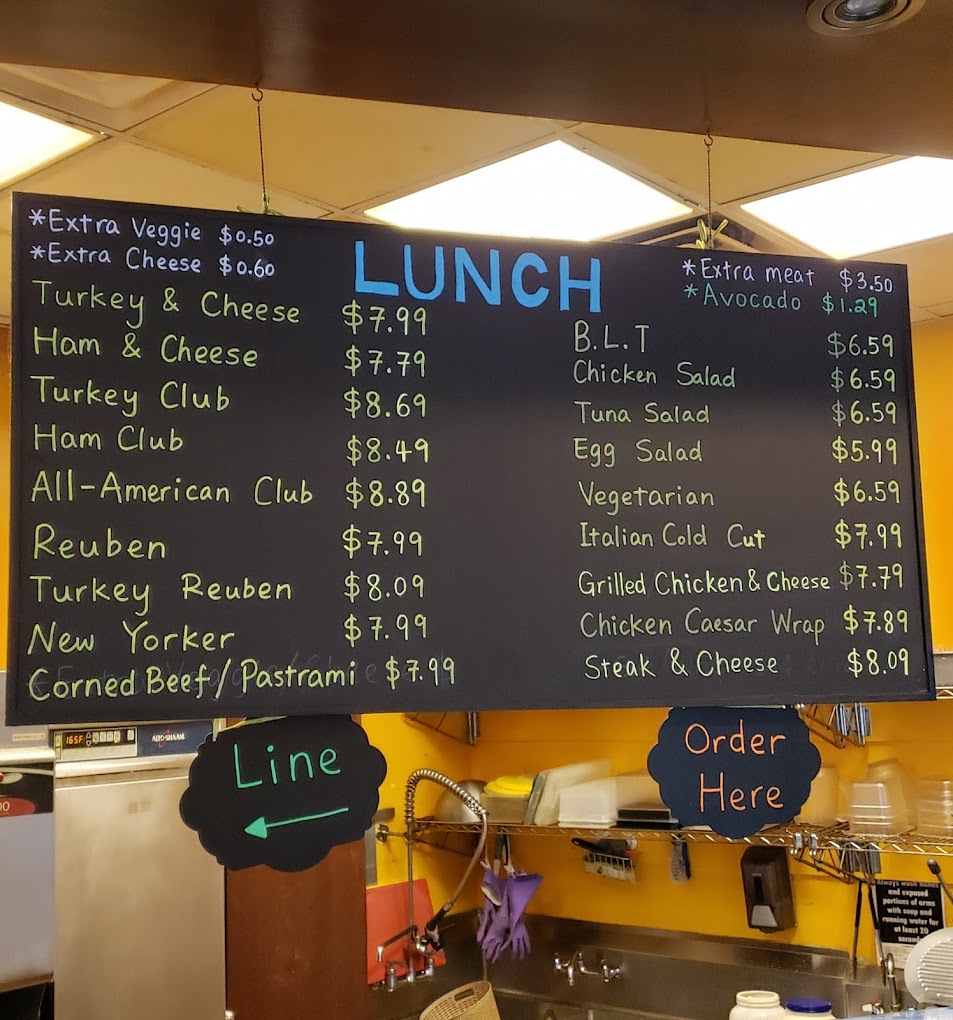 *Extra Veggie $0.50
*Extra Cheese $0.60
LUNCH
*Extra meat $3.50
*Avocado $1.29
Turkey & Cheese $7.99
Ham & Cheese $7.79
Turkey Club $8.69
Ham Club $8.49
All-American Club $8.89
Reuben $7.99
Turkey Reuben $8.09
New Yorker $7.99
Corned Beef/Pastrami $7.99
B.L.T $6.59
Chicken Salad $6.59
Tuna Salad $6.59
Egg Salad $5.99
Vegetarian $6.59
Italian Cold Cut $7.99
Grilled Chicken & Cheese $7.79
Chicken Caesar Wrap $7.89
Steak & Cheese $8.09
Line
Order
Here
165F
ALTO-SHAAM
Always wash hands
and exposed
portions of arms
with soap and
running water for
at least 20